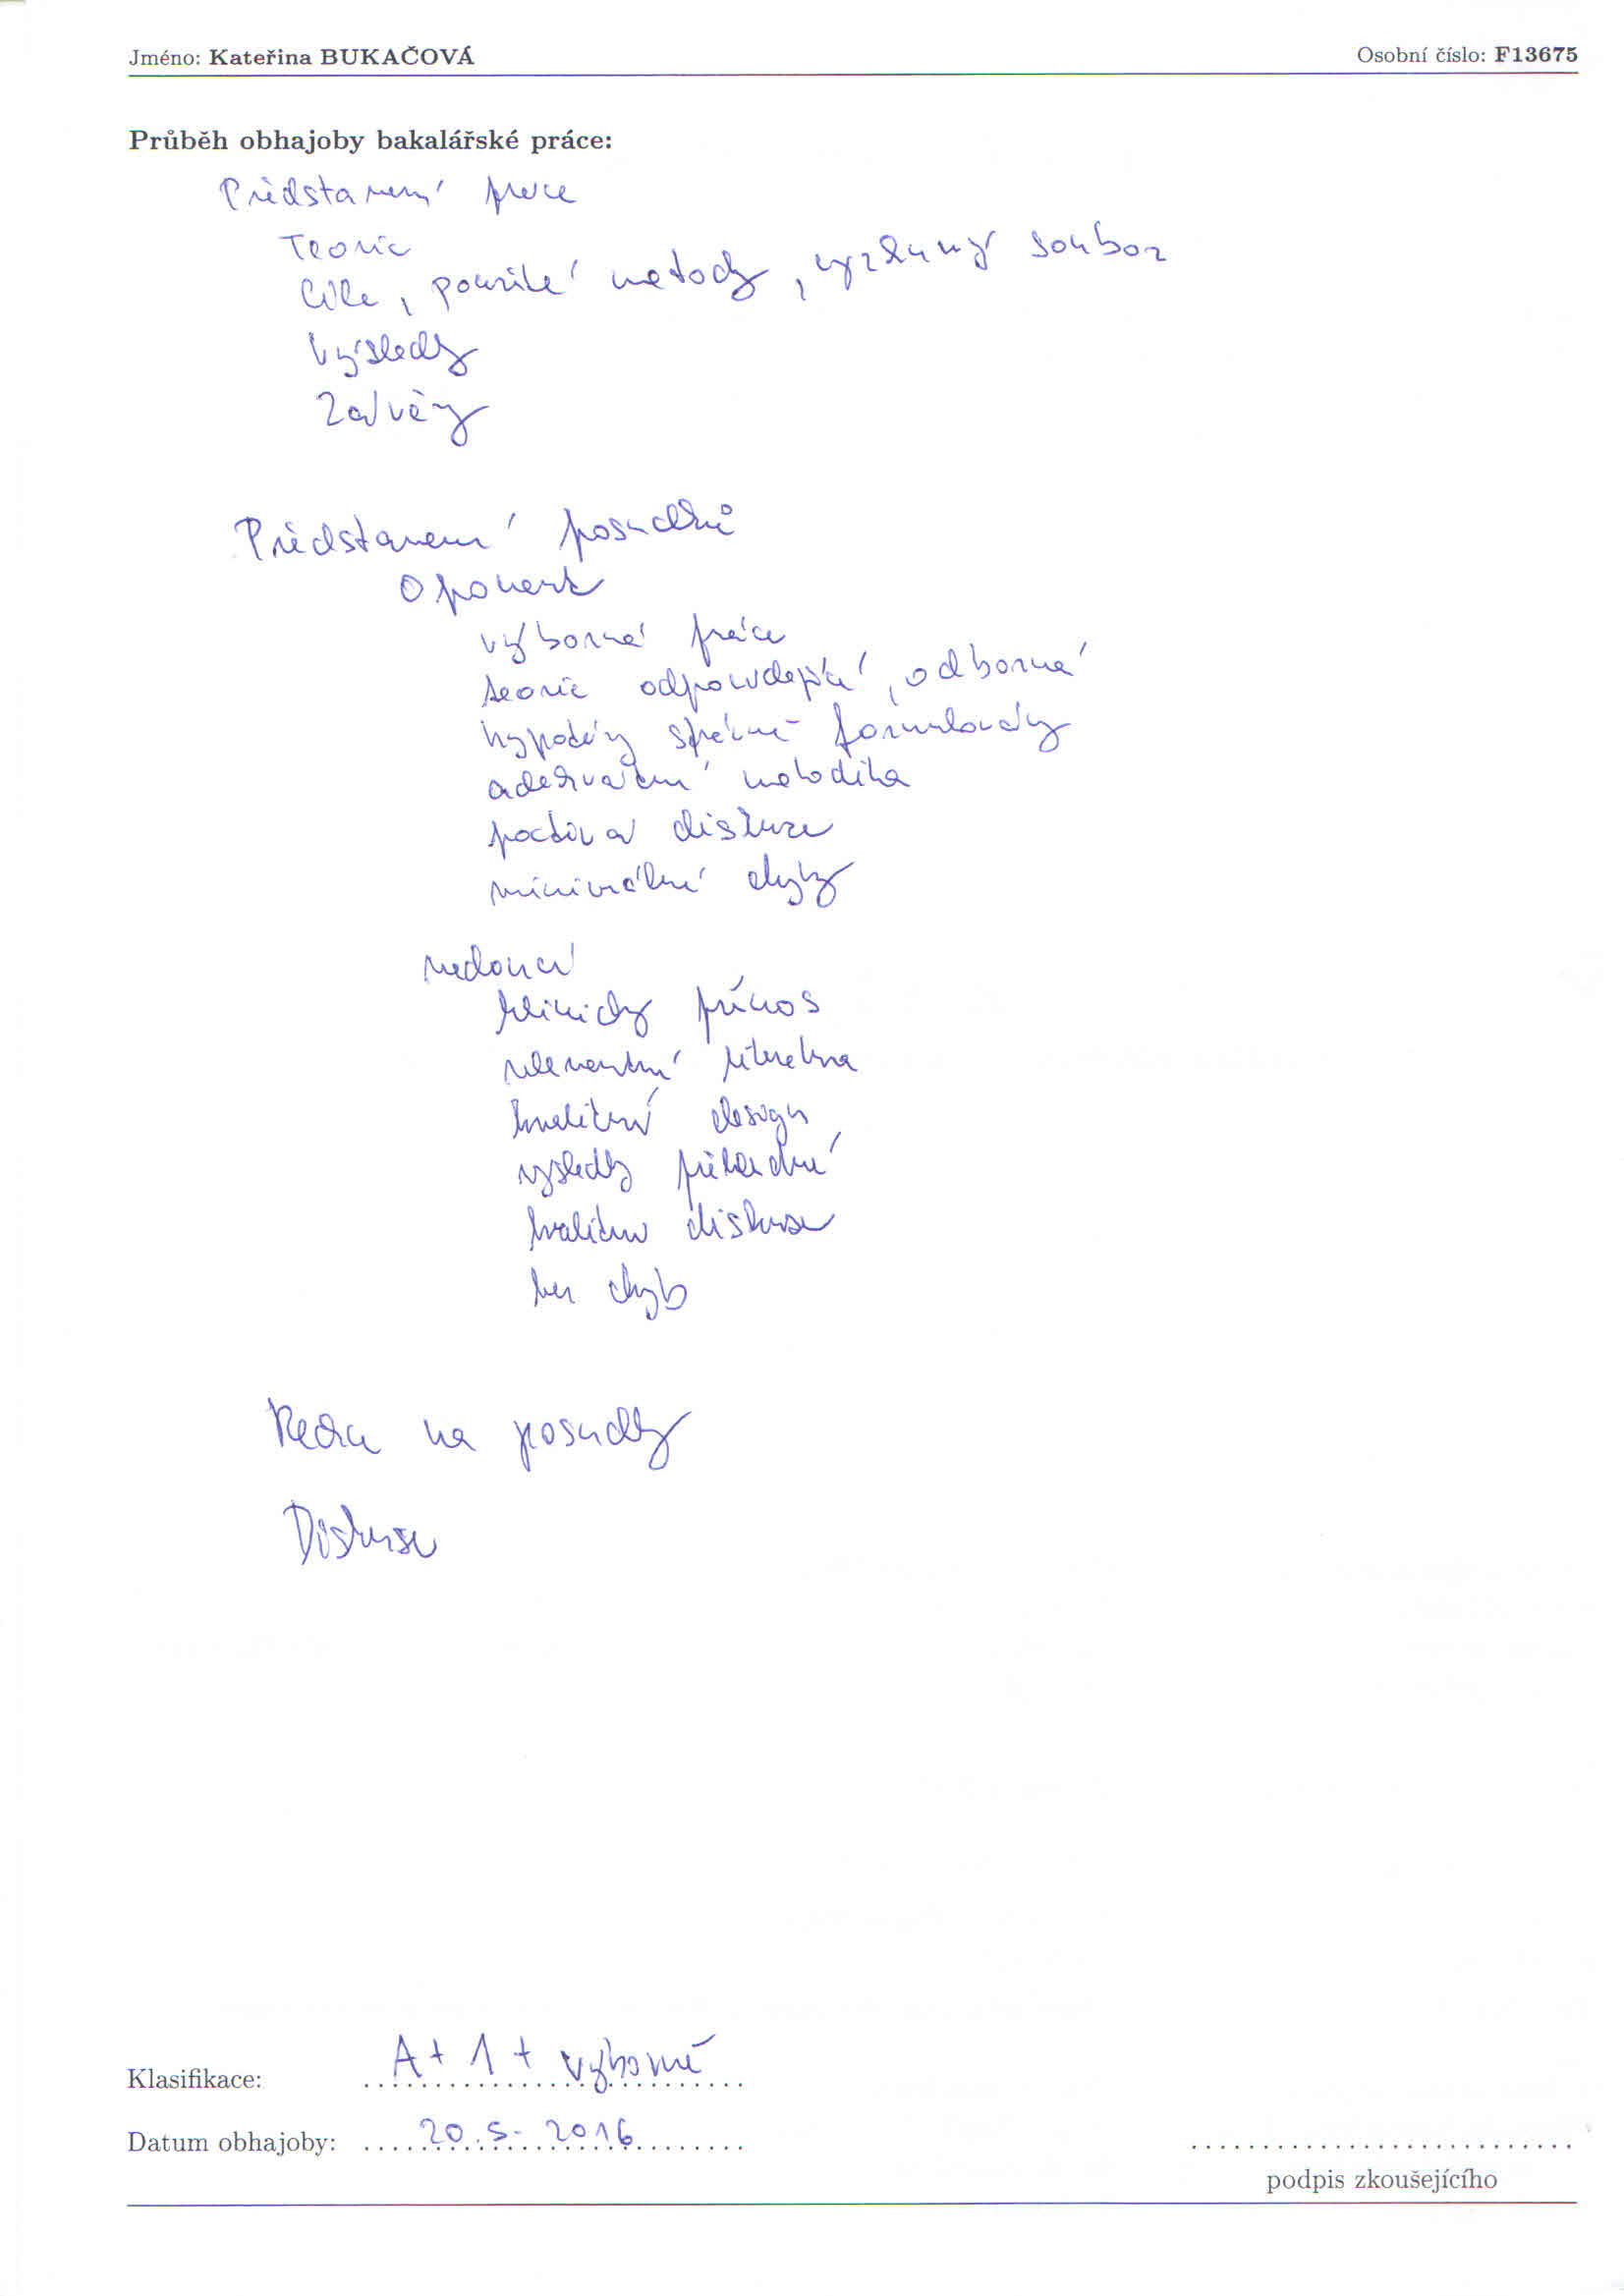 Jméno: Kateřina BUKAČOVÁ Osobní číslo: F13675
Průběh obhajoby bakalářské práce:
Představení práce
Teorie
Cíle, použité metody, výzkumný soubor
Výsledky
Závěry
Představení posudků
Oponent
výborná práce
teorie odpovídající, odborná
hypotézy správně formulovány
adekvátní metodika
poctivá diskuze
minimální chyby
vedoucí
klinický přínos
relevantní literatura
kvalitní design
výsledky přehledné
kvalitní diskuse
bez chyb
Reakce na posudky
Diskuse
Klasifikace: A + 1 + výborně
Datum obhajoby: 20.5. 2016
podpis zkoušejícího